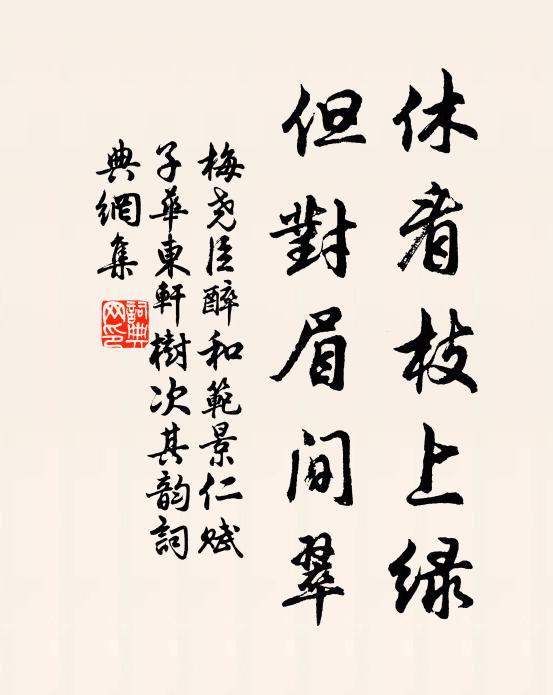 休看枝上緑
但對眉間翠
梅堯臣醉和範景仁賦
子華東軒樹次其韵詞
典網集
詞典
网印